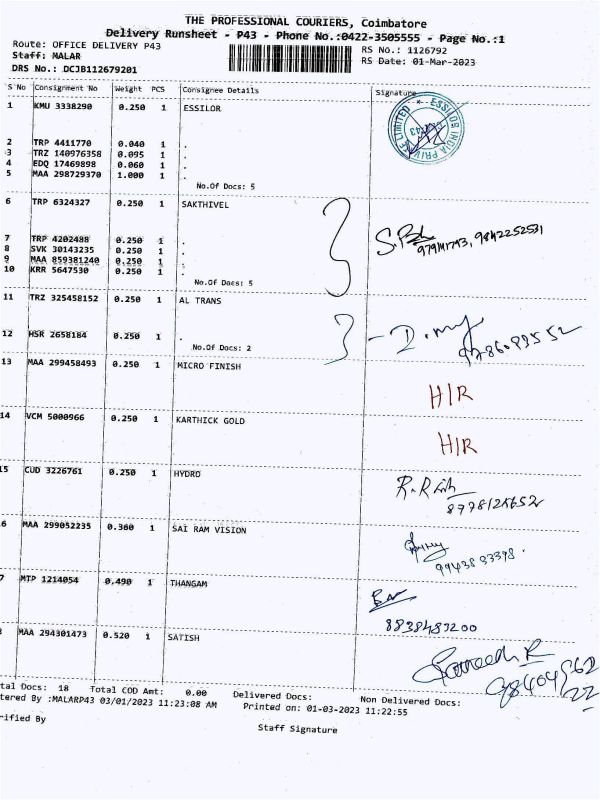 THE PROFESSIONAL COURIERS, Coimbatore
Delivery Runsheet - P43 - Phone No.:0422-3505555 - Page No.:1
Route: OFFICE DELIVERY P43
RS No.: 1126792
Staff: MALAR
RS Date: 01-Mar-2023
DRS No.: DCJB112679201
S No Consignment No Weight PCS Consignee Details Signature
1 KMU 3338290 0.250 1 ESSILOR
ESSILOR INDIA PRIVATE LIMITED
2 TRP 4411770 0.040 1 .
3 TRZ 140976358 0.095 1 .
4 EDQ 17469898 0.060 1 .
5 MAA 298729370 1.000 1 .
No.Of Docs: 5
6 TRP 6324327 0.250 1 SAKTHIVEL
7 TRP 4202488 0.250 1 .
8 SVK 30143235 0.250 1 .
9 MAA 859381240 0.250 1 .
10 KRR 5647530 0.250 1 .
No.Of Docs: 5
11 TRZ 325458152 0.250 1 AL TRANS
12 HSR 2658184 0.250 1 .
No.Of Docs: 2
13 MAA 299458493 0.250 1 MICRO FINISH
H/R
14 VCM 5000966 0.250 1 KARTHICK GOLD
H/R
15 CUD 3226761 0.250 1 HYDRO
8778125652
6 MAA 299052235 0.360 1 SAI RAM VISION
7 MTP 1214054 0.490 1 THANGAM
8838483200
MAA 294301473 0.520 1 SATISH
tal Docs: 18 Total COD Amt: 0.00 Delivered Docs: Non Delivered Docs:
tered By :MALARP43 03/01/2023 11:23:08 AM Printed on: 01-03-2023 11:22:55
rified By
Staff Signature